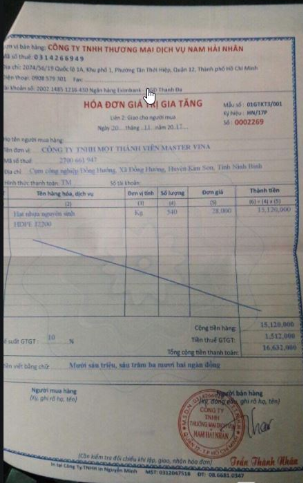 Đơn vị bán hàng: CÔNG TY TNHH THƯƠNG MẠI DỊCH VỤ NAM HẢI NHÂN
Mã số thuế: 0314268949
Địa chỉ: 2074/56/19 Quốc lộ 1A, Khu phố 1, Phường Tân Thới Hiệp, Quận 12, Thành phố Hồ Chí Minh
Điện thoại: 0908 579 381 Fax:
Số tài khoản: Ngân hàng Eximbank
HÓA ĐƠN GIÁ TRỊ GIA TĂNG
Mẫu số: 01GTKT3/001
Liên 2: Giao cho người mua
Ký hiệu: HN/17P
Ngày 20 tháng 11 năm 2017
Số: 0002269
Họ tên người mua hàng:
Tên đơn vị: CÔNG TY TNHH MỘT THÀNH VIÊN MASTER VINA
Mã số thuế 2700 661 947
Địa chỉ: Cụm công nghiệp Đồng Hướng, Xã Đồng Hướng, Huyện Kim Sơn, Tỉnh Ninh Bình
Hình thức thanh toán: TM Số tài khoản:
Tên hàng hóa, dịch vụ Đơn vị tính Số lượng Đơn giá Thành tiền
(2) (3) (4) (5) (6) = (4) x (5)
Hạt nhựa nguyên sinh Kg 540 28,000 15,120,000
Cộng tiền hàng: 15,120,000
suất GTGT: 10 % Tiền thuế GTGT: 1,512,000
Tổng cộng tiền thanh toán: 16,632,000
Số tiền viết bằng chữ: Mười sáu triệu, sáu trăm ba mươi hai ngàn đồng
Người mua hàng Người bán hàng
(Ký, ghi rõ họ, tên) (Ký, đóng dấu, ghi rõ họ, tên)
CÔNG TY
TNHH
THƯƠNG MẠI DỊCH VỤ
NAM HẢI NHÂN
Trần Thành Nhân
(Cần kiểm tra đối chiếu khi lập, giao, nhận hóa đơn)
In tại Công ty TNHH In Nguyễn Minh MST: 0312047518 ĐT: 08.6681.0347